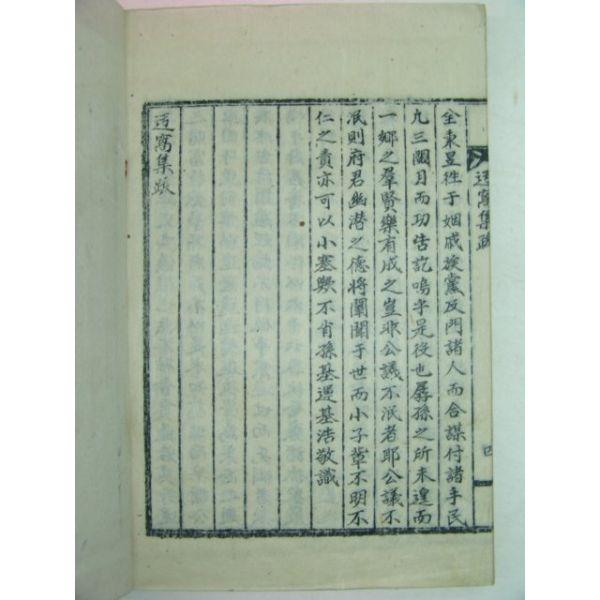 迃窩集跋
四
全東昱徃于姻戚族黨及門諸人而合謀付諸手民
凡三閱月而功告訖嗚乎是役也孱孫之所未遑而
一鄉之羣賢樂有成之豈非公議不泯者耶公議不
泯則府君幽潛之德將闡聞于世而小子輩不明不
仁之責亦可以小塞歟不肖孫基基浩敬識
迃窩集跋